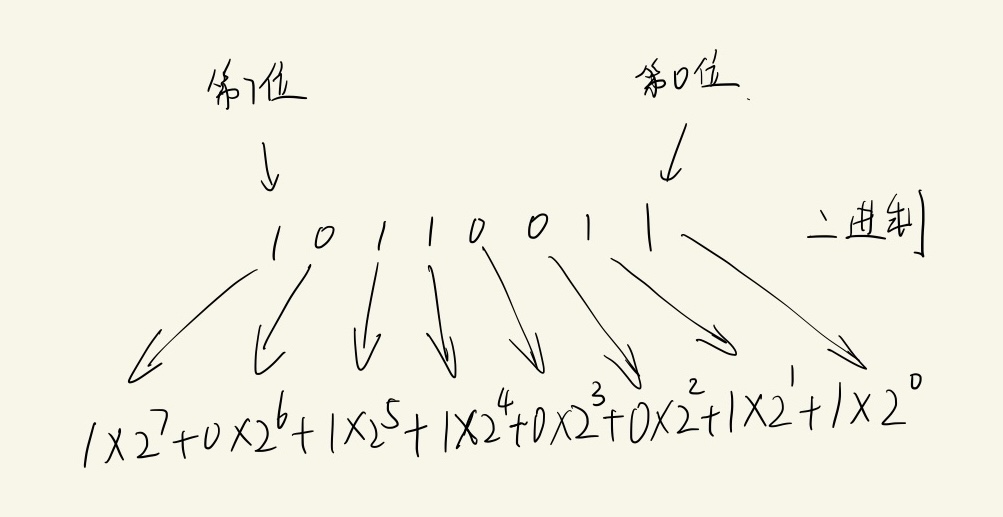 第7位 第0位
1 0 1 1 0 0 1 1 二进制
1×2⁷+0×2⁶+1×2⁵+1×2⁴+0×2³+0×2²+1×2¹+1×2⁰